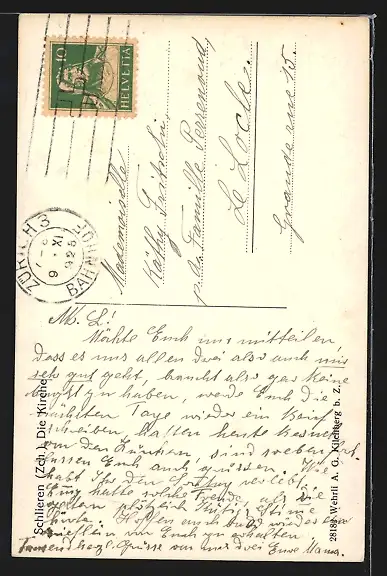 HELVETIA
10
ZÜRICH 3
BAHNHOF
9. XI
1925
Mademoiselle
Käthy
p. a. Famille Perrenoud,
Le Locle.
Grande rue 15.
Schlieren (Zch.) Die Kirche
28184 Wehrli A. G. Kilchberg b. Z.
M. L!
Möchte Euch nur mitteilen
dass es uns allen drei also auch mir
sehr gut geht, braucht also gar keine
Angst zu haben, werde Euch die
nächsten Tage wieder ein Brief
schreiben. Hatten heute Besuch
von den Zürchern, sind soeben fort
lassen Euch auch grüssen.
habt Ihr den Sonntag verlebt,
hatte solche Freude, als sie
Hoffen auch bald wieder ein
von Euch zu erhalten
herzl. Grüsse von uns drei Eure Mama.